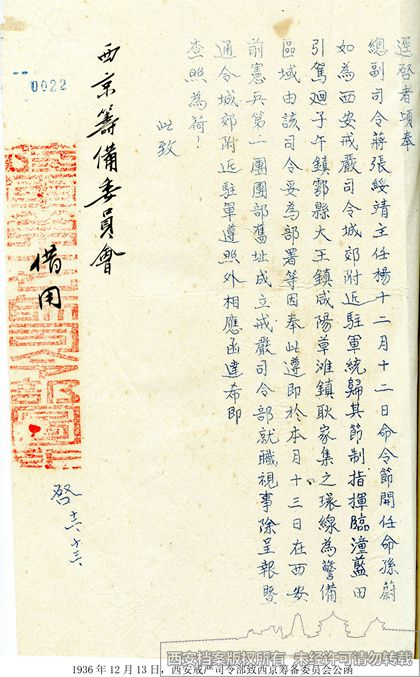 逕啓者頃奉
總副司令蔣張綏靖主任楊十二月十二日命令節開任命孫蔚
如為西安戒嚴司令城郊附近駐軍統歸其節制指揮臨潼藍田
引駕廻子午鎮鄠縣大王鎮咸陽草滩鎮耿家集之環線為警備
區域由該司令妥為部署等因奉此遵即於本月十三日在西安
前憲兵第一團團部舊址成立戒嚴司令部就職視事除呈報暨
通令城郊附近駐軍遵照外相應函達希即
查照為荷！
此致
西京籌備委員會
借用
啓 十二、十三
0022
西安档案版权所有 未经许可请勿转载
1936年12月13日，西安戒严司令部致西京筹备委员会公函